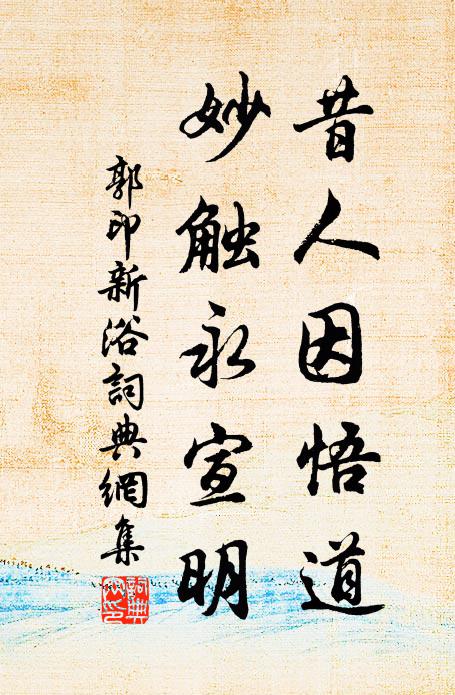 昔人因悟道
妙触永宣明
郭印新浴詞典網集